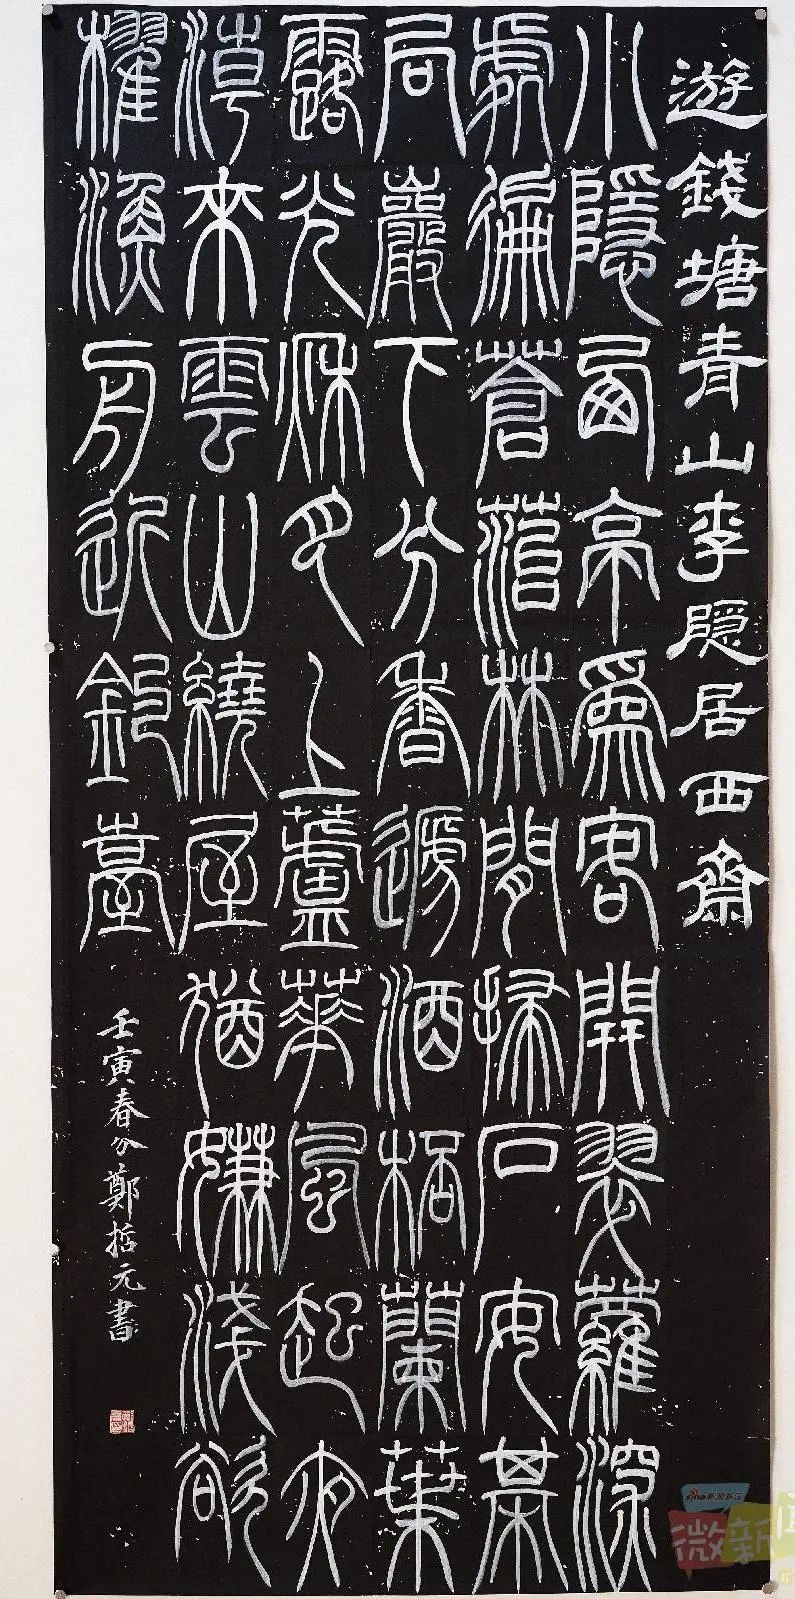 遊錢塘青山李隱居西齋
小隱西亭爲客開翠蘿深
處徧蒼菭林間掃石安棊
局巖下分香遞酒桮蘭葉
露光秋月上蘆華風起夜
潮來雲山繞屋猶嫌淺欲
櫂漁舟近釣臺
壬寅春分鄭哲元書
sina新浪浙江
微新